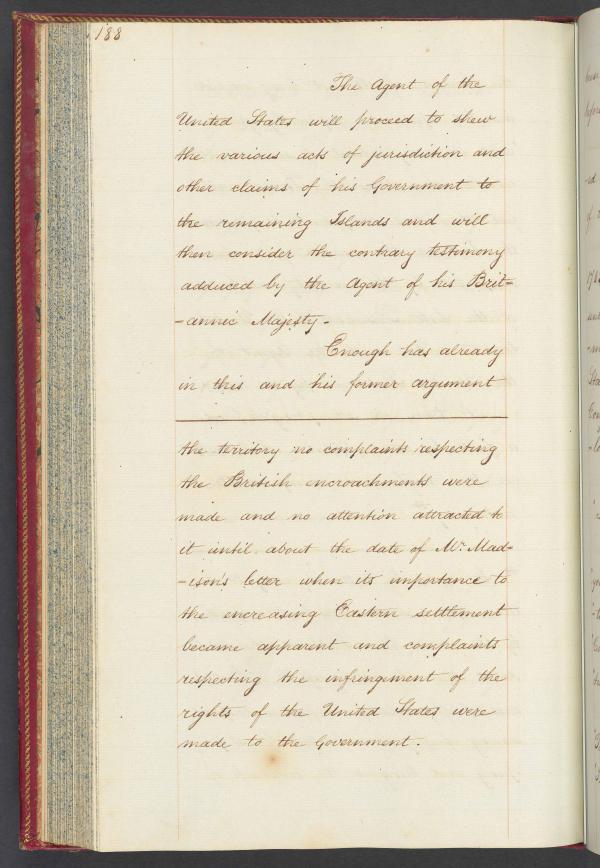 188
The Agent of the
United States will proceed to shew
the various acts of jurisdiction and
other claims of his Government to
the remaining Islands and will
then consider the contrary testimony
adduced by the Agent of his Brit=
-annic Majesty-
Enough has already
in this and his former argument
the territory no complaints respecting
the British encroachments were
made and no attention attracted to
it until about the date of Mr. Mad=
-ison's letter when its importance to
the encreasing Eastern settlement
became apparent and complaints
respecting the infringement of the
rights of the United States were
made to the Government.